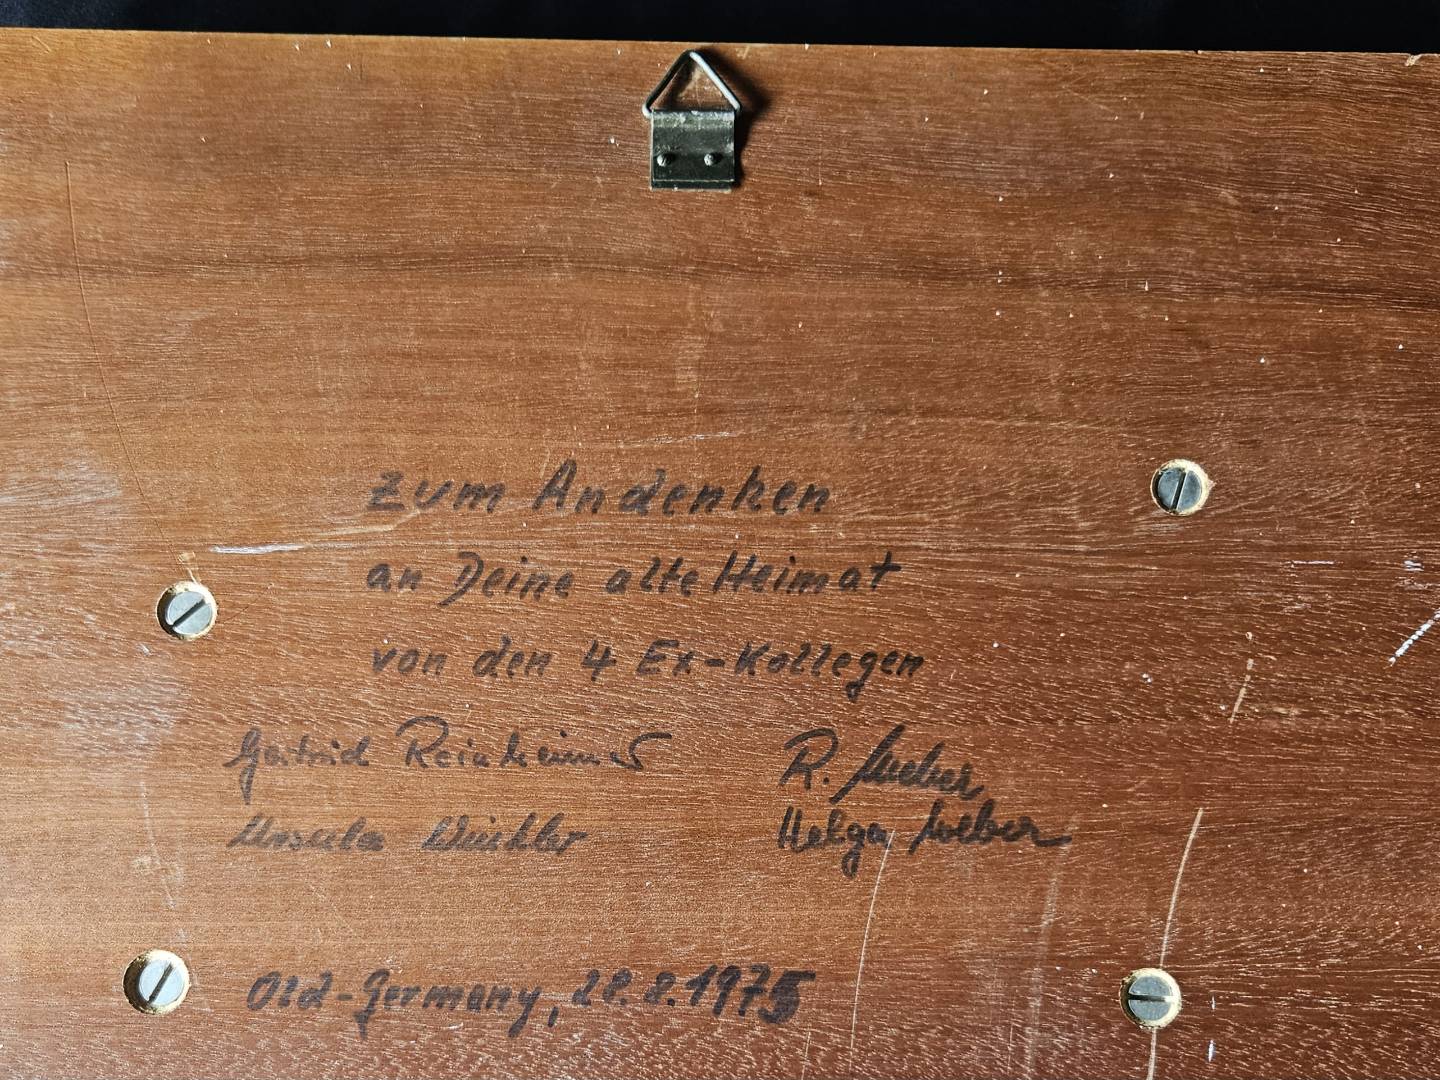 zum Andenken
an Deine alte Heimat
von den 4 Ex-Kollegen
Reinheimer R. Weber
Ursula Winkler Helga Weber
Old-Germany, 28.8.1975